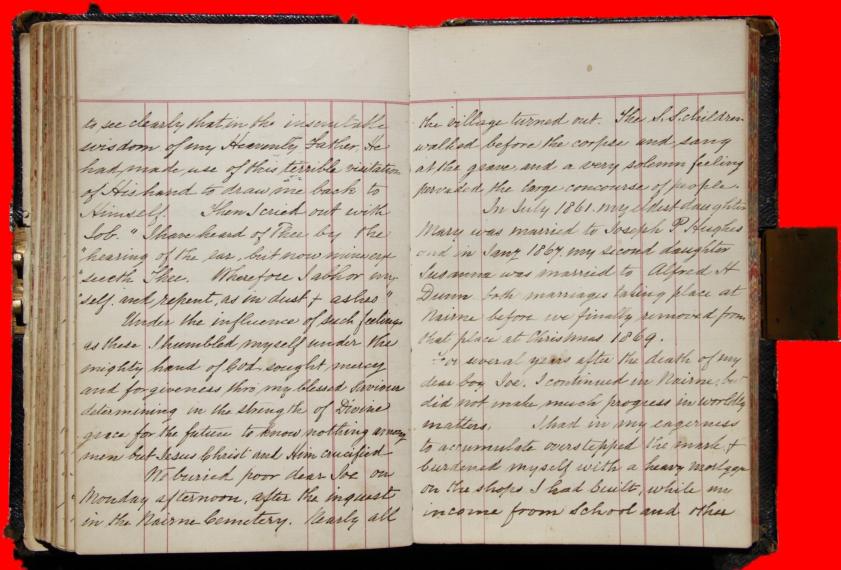 to see clearly that, in the inscrutable
wisdom of my Heavenly Father, He
had made use of this terrible visitation
of His hand to draw me back to
Himself. Then I cried out with
Job. "I have heard of Thee by the
"hearing of the ear, but now mine eye
"seeth Thee. Wherefore I abhor my
"self. and repent, as in dust & ashes"
Under the influence of such feelings
as these I humbled myself under the
mighty hand of God. sought mercy
and forgiveness thro my blessed Saviour
determining in the strength of Divine
grace for the future to know nothing among
men but Jesus Christ and Him crucified
We buried poor dear Joe on
Monday afternoon, after the inquest
in the Nairne Cemetery. Nearly all
the village turned out. The S.S. children
walked before the corpse and sang
at the grave and a very solemn feeling
pervaded the large concourse of people.
In July 1861. my eldest daughter
Mary was married to Joseph P Hughes
and in Jany 1867. my second daughter
Susanna was married to Alfred H
Dunn both marriages taking place at
Nairne before we finally removed from
that place at Christmas 1869.
For several years after the death of my
dear boy Joe. I continued in Nairne, but
did not make much progress in worldly
matters. I had in my eagerness
to accumulate overstepped the mark &
burdened myself with a heavy mortgage
on the shops I had built, while my
income from School and other